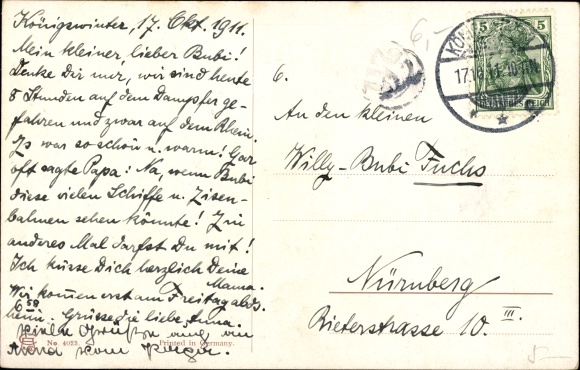 Königswinter, 17. Okt. 1911.
Mein kleiner, lieber Bubi!
Denke Dir nur, wir sind heute
8 Stunden auf dem Dampfer ge-
fahren und zwar auf dem Rhein.
Es war so schön u. warm! Gar
oft sagte Papa: Na, wenn Bubi
diese vielen Schiffe u. Eisen-
bahnen sehen könnte! Ein
anderes Mal darfst Du mit!
Ich küsse Dich herzlich Deine
Mama.
Wir kommen erst am Freitag abds.
6 58
heim. Grüsse die liebe Anna.
viele Grüße
No. 4023. Printed in Germany.
6,-
5 5
17.10.11
6.
An den kleinen
Willy-Bubi Fuchs
Nürnberg
Bieterstrasse 10. III.
5-